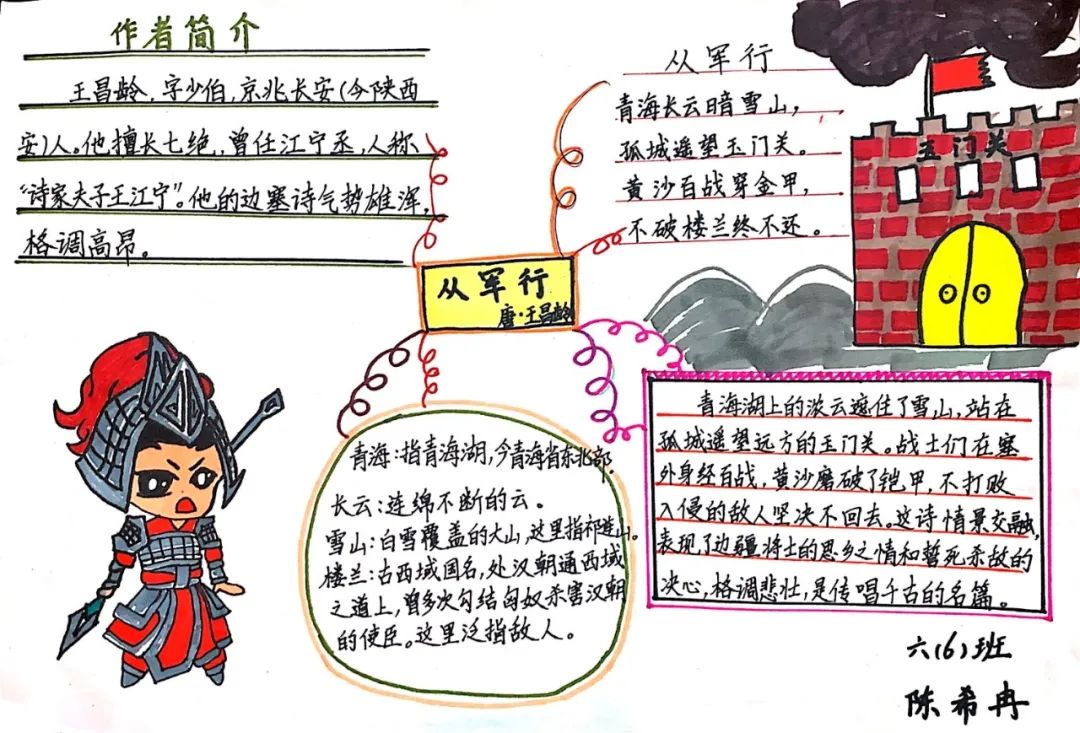 作者简介
王昌龄，字少伯，京兆长安(今陕西
安)人。他擅长七绝，曾任江宁丞，人称
“诗家夫子王江宁”。他的边塞诗气势雄浑，
格调高昂。
从军行
青海长云暗雪山，
孤城遥望玉门关。
黄沙百战穿金甲，
不破楼兰终不还。
玉门关
从军行
唐·王昌龄
青海：指青海湖，今青海省东北部。
长云：连绵不断的云。
雪山：白雪覆盖的大山，这里指祁连山。
楼兰：古西域国名，处汉朝通西域
之道上，曾多次勾结匈奴杀害汉朝
的使臣。这里泛指敌人。
青海湖上的浓云遮住了雪山，站在
孤城遥望远方的玉门关。战士们在塞
外身经百战，黄沙磨破了铠甲，不打败
入侵的敌人坚决不回去。这诗情景交融，
表现了边疆将士的思乡之情和誓死杀敌的
决心，格调悲壮，是传唱千古的名篇。
六(6)班
陈希冉